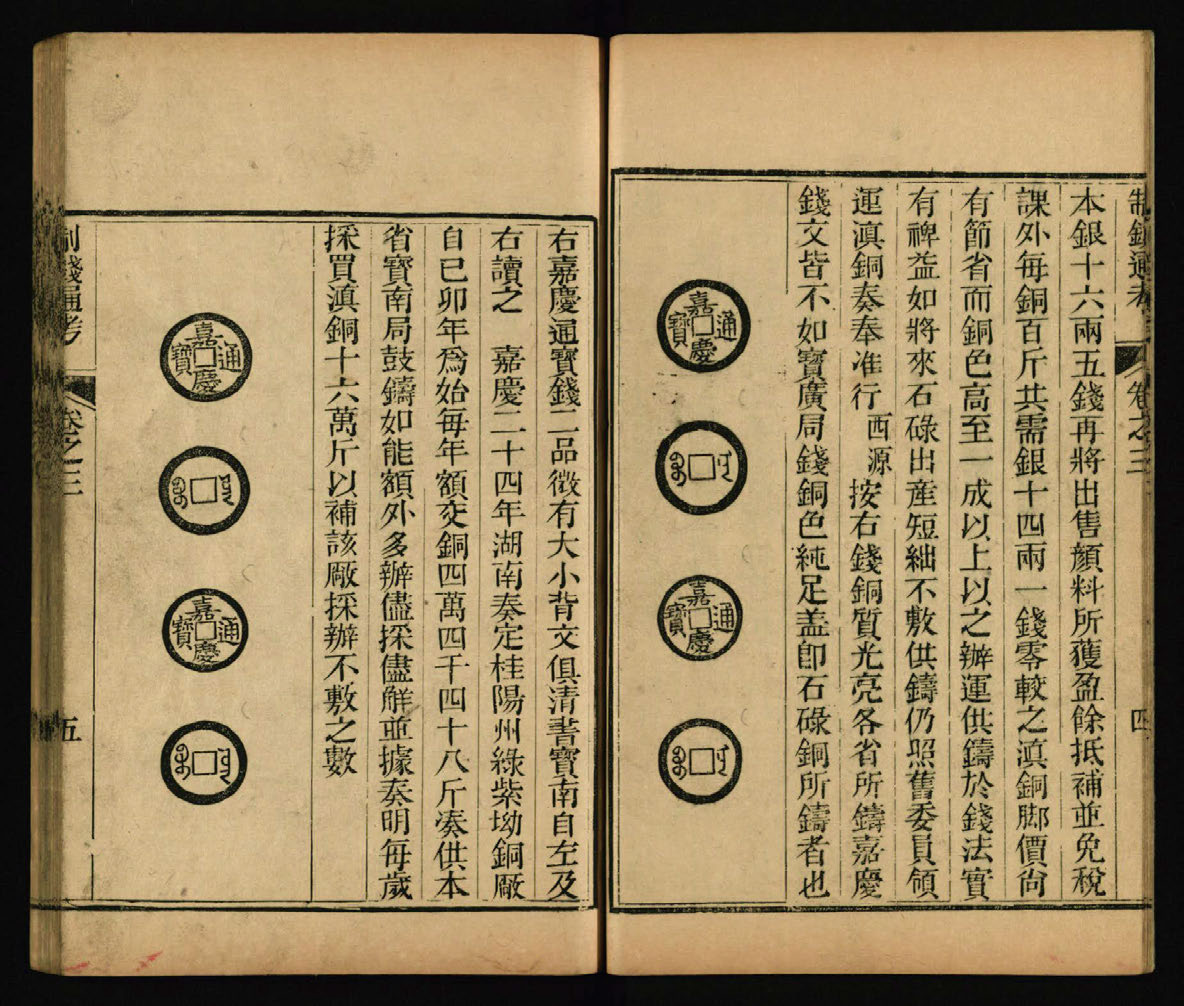 制錢通考 卷之三 四
本銀十六兩五錢再將出售顏料所獲盈餘抵補並免稅
課外每銅百斤共需銀十四兩一錢零較之滇銅脚價尙
有節省而銅色高至一成以上以之辦運供鑄於錢法實
有裨益如將來石碌出產短絀不敷供鑄仍照舊委員領
運滇銅奏奉准行 西源按右錢銅質光亮各省所鑄嘉慶
錢文皆不如寶廣局錢銅色純足盖卽石碌銅所鑄者也
嘉慶通寶
嘉慶通寶
右嘉慶通寶錢二品微有大小背文俱清書寶南自左及
右讀之 嘉慶二十四年湖南奏定桂陽州綠紫坳銅厰
自已卯年爲始每年額交銅四萬四千四十八斤湊供本
省寶南局鼓鑄如能額外多辦儘採儘解並據奏明每歲
採買滇銅十六萬斤以補該厰採辦不敷之數
嘉慶通寶
嘉慶通寶
制錢通考 卷之三 五